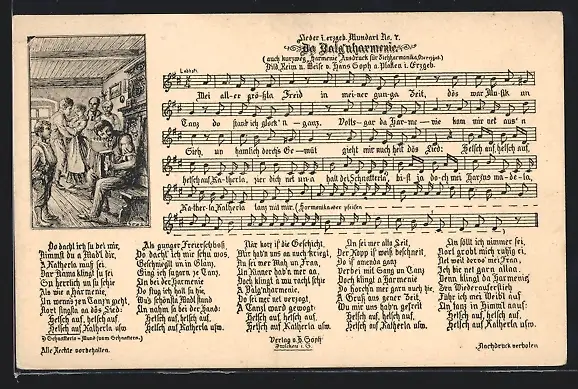 Lieder i. erzgeb. Mundart No. 7.
Da Balg'nharmenie.
(auch kurzweg „Harmenie" Ausdruck für Ziehharmonika,
Bild, Reim u. Weise v. Hans Soph a. Platten i. Erzgeb.
Lebhaft.
Mei all-er größ-ta Freid in mei-ner gun-ga Zeit, dös war Mu-sik un
Tanz do stand ich glöck'n-ganz. Volls-gar da Har-me-nie kam mir net aus'n
Sieh, un hamlich dorchs Ge-müt gieht mir nuch heit dös Lied: Hetsch auf, hetsch auf,
hetsch auf, Ka-therla, zier dich net un-a halt dei Schnatterla, bi-st ja do-ch mei Harzns ma-de-la,
Ka-ther-la Katherla tanz mit mir. (Harmonika oder pfeifen
Do dacht ich su bei mir,
Nimmst du a Madl dir,
A Katherla muß sei,
Dar Nama klingt su fei
Su herrlich un su schie
Als wie a Harmenie,
Un wenns zen Tanz'n gieht,
Hart singsta na dös Lied:
Hetsch auf, hetsch auf,
Hetsch auf Katherla usw.
Als gunger Freierschboß,
Do dacht' ich mir schu wos,
Geschniegllt un in Glanz,
Ging ich sugarn ze Tanz.
Un bei der Harmenie
Do flug ich halt su hie,
Wu's schönsta Madl stand
Un nahm sa bei der Hand:
Hetsch auf, hetsch auf,
Hetsch auf Katherla usw.
När korz is die Geschicht,
Mir hab'n uns aa auch kriegt,
Sa is mei ner Mah un Fraa,
Un Kinner hab'n mer aa.
Doch klingt a mu racht schie
A Balg'nharmenie,
Do sei mer net verzogt,
A Tanzl ward gewogt:
Hetsch auf, hetsch auf,
Hetsch auf Katherla usw.
Un sei mer alta Zeit,
Der Kopp is weiß beschneit,
Do is amenda ganz
Verbei mit Gang un Tanz
Doch klingt a Harmenie
Do horcha mer garn nuch hie,
A Gruß aus gener Zeit,
Wu mir uns hab'n gefreit
Hetsch auf, hetsch auf,
Hetsch auf Katherla usw.
Un söllt ich nimmer sei,
Narl grobt mich ruhig ei,
Net weil dervo mei Fraa,
Ich bie net garn allaa.
Dann klingt da Harmenie
Den Wiederauferstieh
Führ ich mei Weibl auf
Un tanz in Himml nauf:
Hetsch auf, hetsch auf,
Hetsch auf Katherla usw.
) Schnatterla = Mund (vom Schnattern.)
Alle Rechte vorbehalten.
Verlag v. H. Soph
Zwickau i. S.
Nachdruck verboten